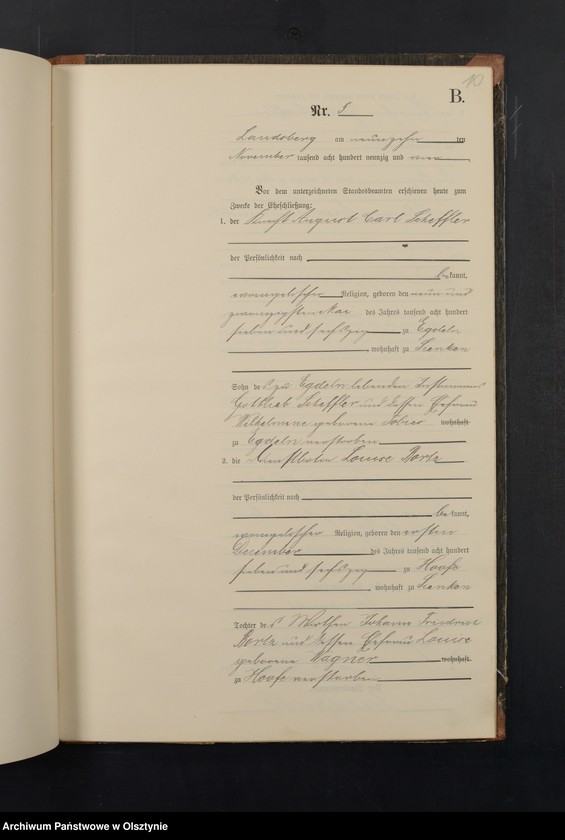 10
B.
Nr.
Landsberg am neunzehn ten
November tausend acht hundert neunzig und
Vor dem unterzeichneten Standesbeamten erschienen heute zum
Zwecke der Eheschließung:
1. der August Carl Scheffler
der Persönlichkeit nach
bekannt,
evangelischer Religion, geboren den neun und
zwanzigsten Mai des Jahres tausend acht hundert
sieben und sechszig zu Egdeln
, wohnhaft zu
Sohn des zu Egdeln lebenden Instmanns
Gottlieb Scheffler und dessen Ehefrau
Wilhelmine geborene Tobies wohnhaft
zu Egdeln verstorben
2. die Louise Bortz
der Persönlichkeit nach
bekannt,
evangelischer Religion, geboren den ersten
December des Jahres tausend acht hundert
sieben und sechszig zu Hoofe
, wohnhaft zu
Tochter des Wirthen Johann Friedrich
Bortz und dessen Ehefrau Louise
geborene Wagner wohnhaft
zu Hoofe verstorben
Archiwum Państwowe w Olsztynie